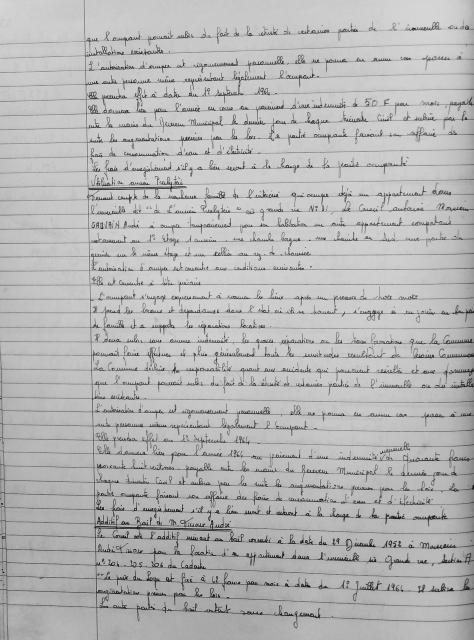 que l'occupant pourrait subir du fait de la vétusté de certaines parties de l'immeuble ou des
installations existantes.
L'autorisation d'occuper est rigoureusement personnelle, elle ne pourra en aucun cas passer à
une autre personne même représentant légalement l'occupant.
Elle prendra effet à dater du 1er septembre 1964.
Elle donnera lieu pour l'année en cours au paiement d'une indemnité de 50 F par mois, payable
entre les mains du Receveur Municipal le dernier jour de chaque trimestre Civil et subira par la
suite les augmentations prévues par la loi. La partie occupante faisant son affaire des
frais de consommation d'eau et d'électricité.
Les frais d'enregistrement s'il y a lieu seront à la charge de la partie occupante
Utilisation ancien Presbytère
Tenant compte de la nombreuse famille de l'intéressé qui occupe déjà un appartement dans
l'immeuble dit "de l'ancien Presbytère" sis grande rue N° 31, le Conseil autorise Monsieur
André à occuper temporairement pour son habitation un autre appartement comportant
notamment au 1er étage
L'autorisation d'occuper est consentie aux conditions suivantes.
Elle est consentie à titre précaire
- L'occupant s'engage expressément à rendre les lieux après un préavis de trois mois
Il prend les locaux et dépendances dans l'état où ils se trouvent, s'engage à en jouir en bon père
de famille et à supporter les réparations locatives.
Il devra subir sans aucune indemnité les grosses réparations ou les transformations que la Commune
pourrait faire effectuer et plus généralement toutes les servitudes
La Commune décline la responsabilité quant aux accidents qui pourraient survenir et aux dommages
que l'occupant pourrait subir du fait de la vétusté de certaines parties de l'immeuble ou des installa-
tions existantes.
L'autorisation d'occuper est rigoureusement personnelle, elle ne pourra en aucun cas passer à une
autre personne même représentant légalement l'occupant.
Elle prendra effet au 15 Septembre 1964.
Elle donnera lieu pour l'année 1964 au paiement d'une indemnité mensuelle de Quarante francs
soixante huit centimes payable entre les mains du Receveur Municipal le dernier jour de
chaque trimestre Civil et subira par la suite les augmentations prévues par la loi, la
partie occupante faisant son affaire des frais de consommation d'eau et d'électricité
Les frais d'enregistrement s'il y a lieu sont et seront à la charge de la partie occupante
Additif au Bail de M. André
Le Conseil de l'additif suivant au bail consenti à la date du 29 Décembre 1952 à Monsieur
André pour la location d'un appartement dans l'immeuble sis Grande rue, section A
n° 204 - 205 - 206 du Cadastre
"Le prix du loyer est fixé à 62 francs par mois à dater du 1er Juillet 1964. Il subira les
augmentations prévues par la loi.
Les autres parties du bail restent sans changement.